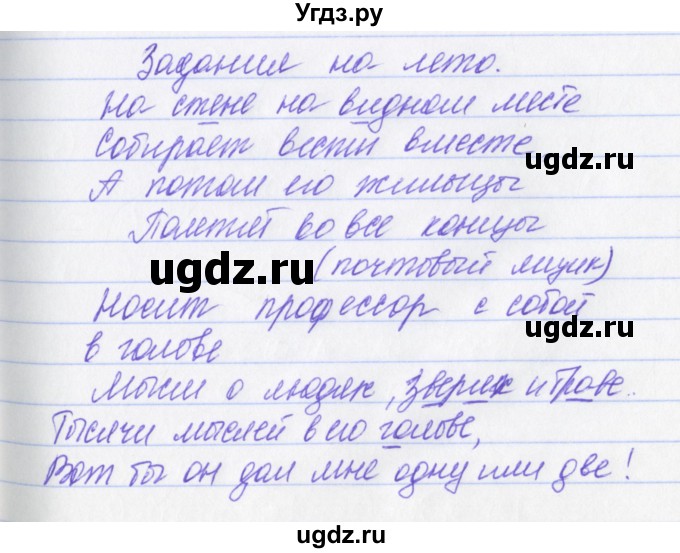 Угдз.ру
Задания на лето.
На стене на видном месте
Собирает вести вместе
ugdz.ru
А потом его жильцы
Полетят во все концы
ugdz.ru
(почтовый ящик)
Носит профессор с собой
ugdz.ru
в голове
Мысли о людях, зверях и траве.
Тысячи мыслей в его голове,
Вот бы он дал мне одну или две!
ugdz.ru